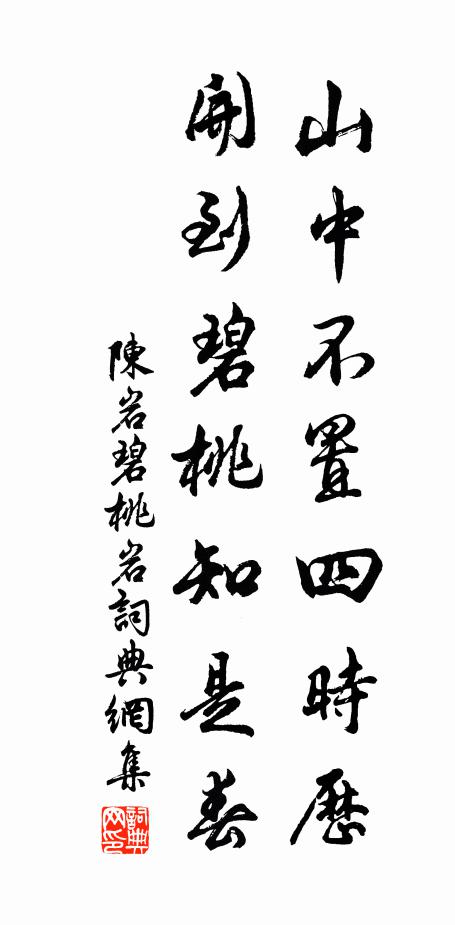 山中不置四時歷
開到碧桃知是春
陳岩碧桃岩詞典網集
詞典網印